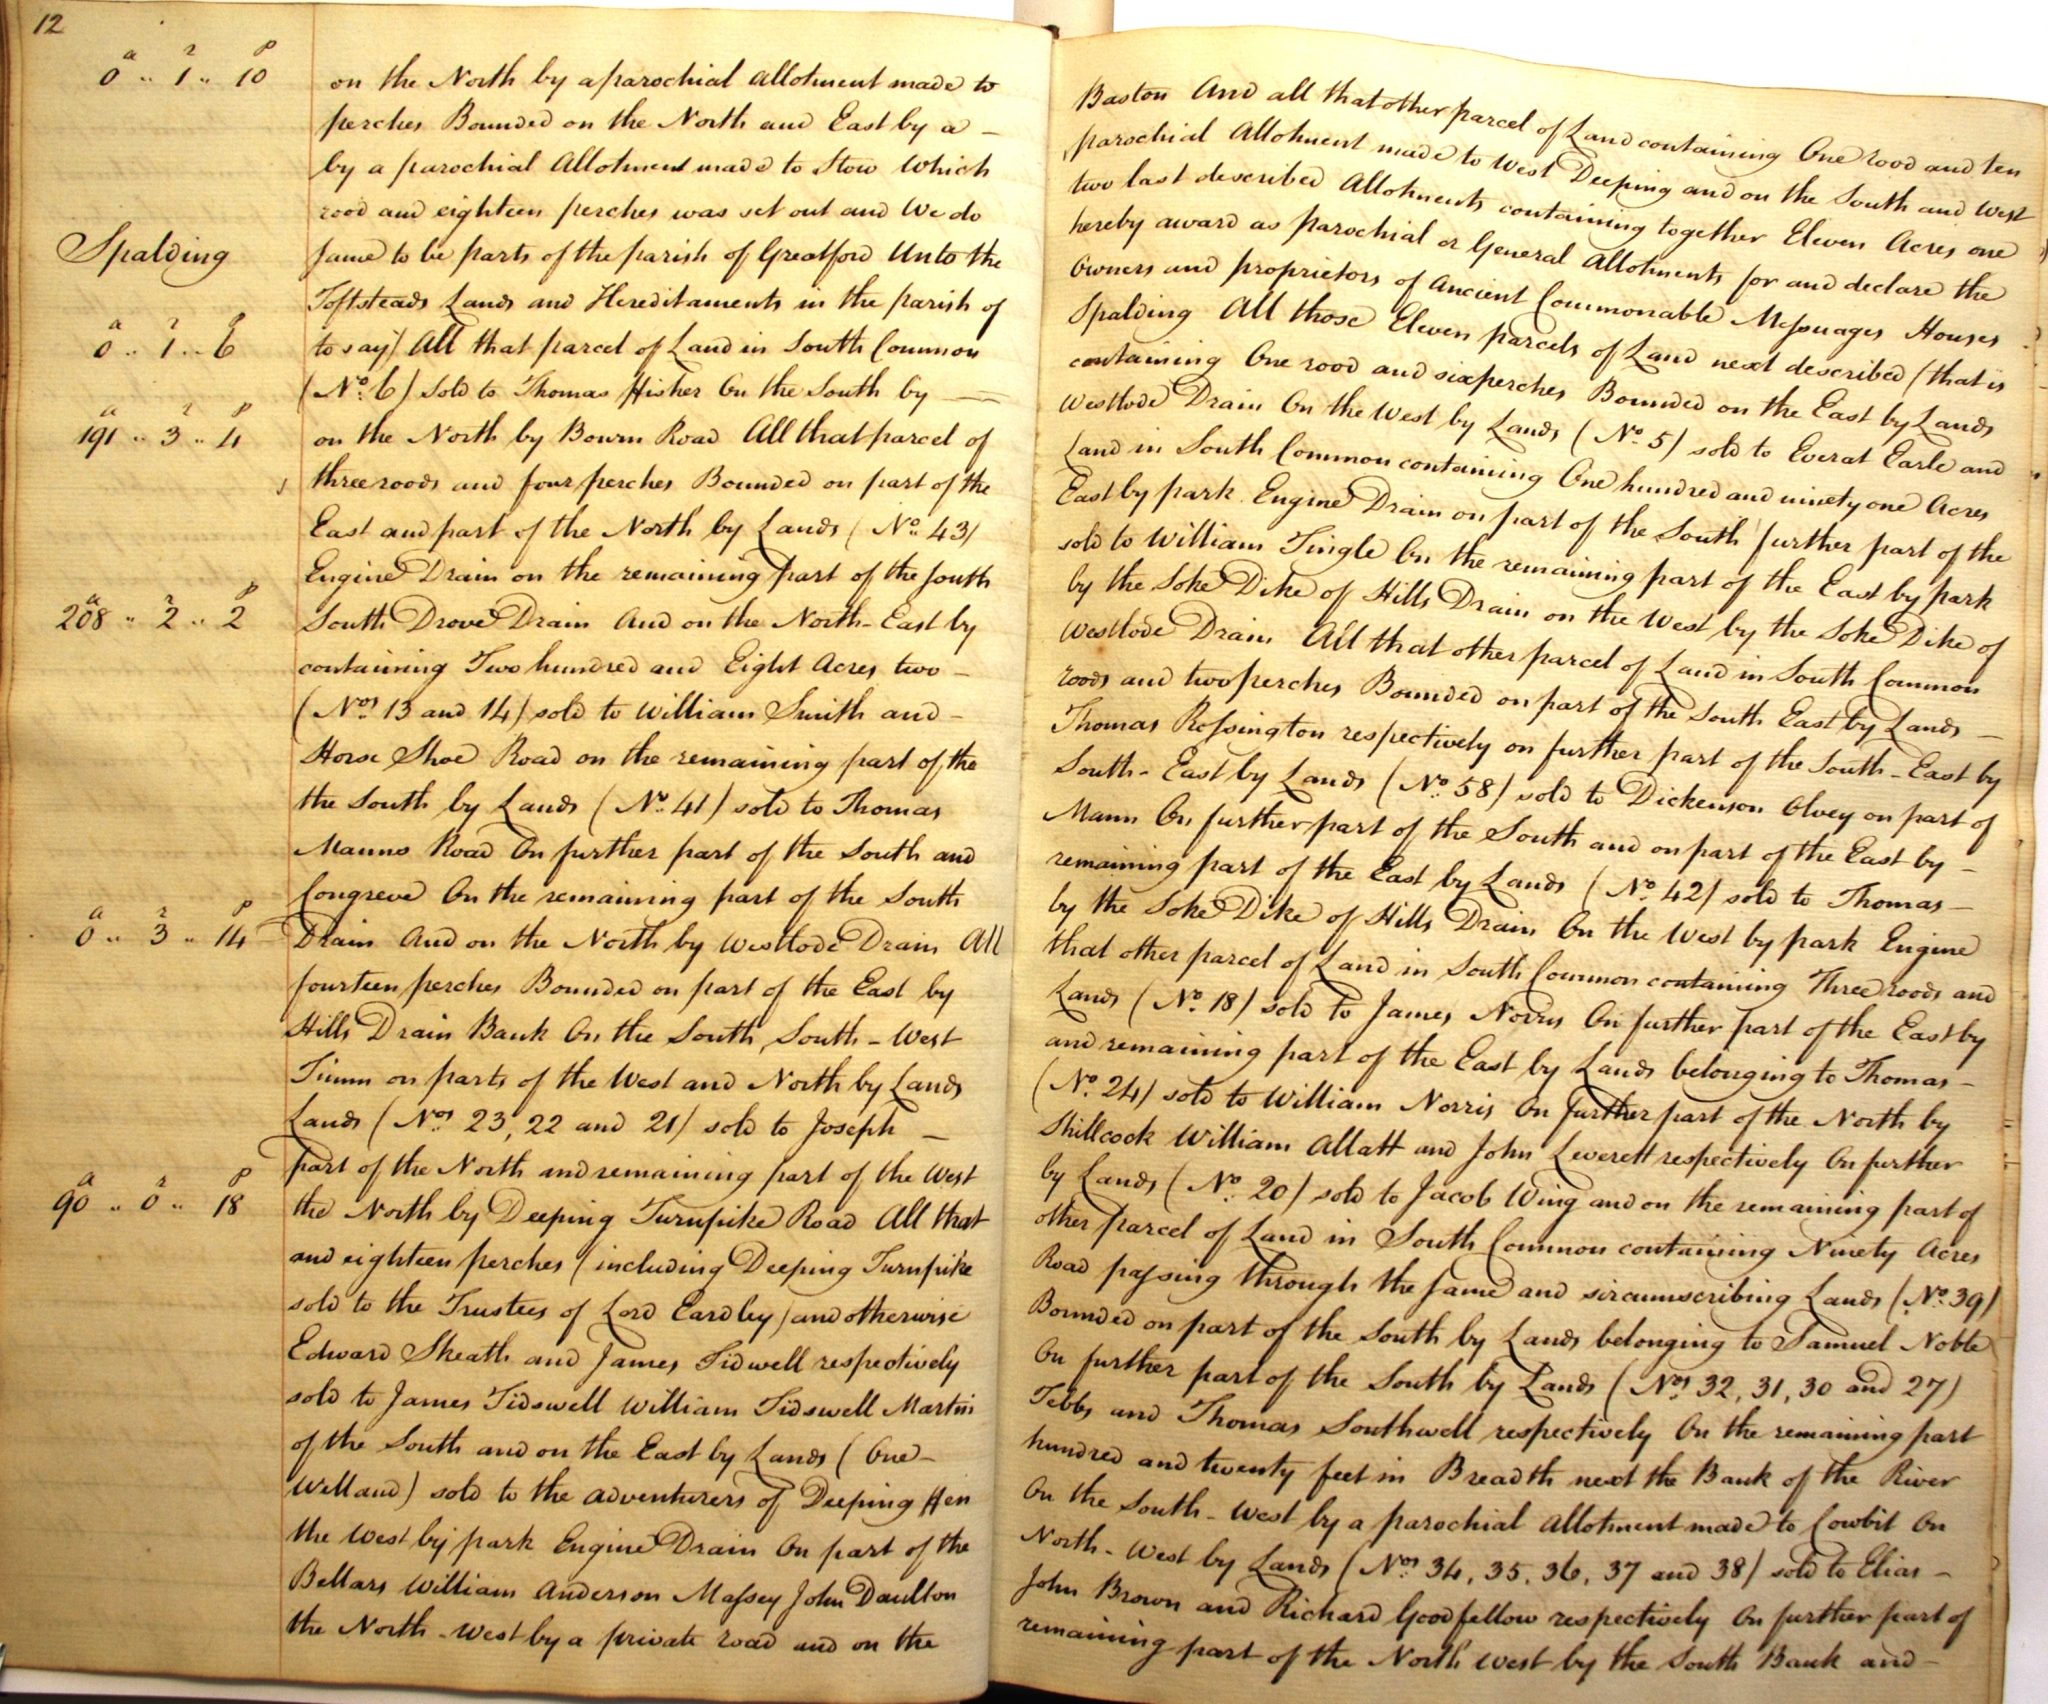 12
a r p
0 .. 1 .. 10
on the North by a parochial Allotment made to Baston And all that other parcel of Land containing One rood and ten
perches Bounded on the North and East by a – parochial Allotment made to West Deeping and on the South and West
by a parochial Allotment made to Stow Which two last described Allotments containing together Eleven Acres one
rood and eighteen perches was set out and We do hereby award as parochial or General Allotments for and declare the
Spalding
same to be parts of the parish of Greatford Unto the Owners and proprietors of Ancient Commonable Messuages Houses
Toftsteads Lands and Hereditaments in the parish of Spalding All those Eleven parcels of Land next described (that is
a r p
0 .. 1 .. 6
to say) All that parcel of Land in South Common containing One rood and six perches Bounded on the East by Lands
(No. 6) sold to Thomas Fisher On the South by — Westlode Drain On the West by Lands (No. 5) sold to Everat Earle and
a r p
191 .. 3 .. 4
on the North by Bourn Road All that parcel of Land in South Common containing One hundred and ninety one Acres
three roods and four perches Bounded on part of the East by park Engine Drain on part of the South further part of the
East and part of the North by Lands (No. 43) sold to William Tingle On the remaining part of the East by park
Engine Drain on the remaining part of the South by the Soke Dike of Hills Drain on the West by the Soke Dike of
a r p
208 .. 2 .. 2
South Drove Drain And on the North-East by Westlode Drain All that other parcel of Land in South Common
containing Two hundred and Eight Acres two – roods and two perches Bounded on part of the South East by Lands –
(Nos. 13 and 14) sold to William Smith and – Thomas Rossington respectively on further part of the South-East by
Horse Shoe Road on the remaining part of the South-East by Lands (No. 58) sold to Dickenson Olvey on part of
the South by Lands (No. 41) sold to Thomas Mann On further part of the South and on part of the East by –
Manns Road On further part of the South and remaining part of the East by Lands (No. 42) sold to Thomas –
Congreve On the remaining part of the South by the Soke Dike of Hills Drain On the West by park Engine
a r p
0 .. 3 .. 14
Drain And on the North by Westlode Drain All that other parcel of Land in South Common containing Three roods and
fourteen perches Bounded on part of the East by Lands (No. 18) sold to James Norris On further part of the East by
Hills Drain Bank On the South, South-West and remaining part of the East by Lands belonging to Thomas –
Timm on parts of the West and North by Lands (No. 24) sold to William Norris On further part of the North by
Lands (Nos. 23, 22 and 21) sold to Joseph – Skillcock William Allatt and John Leverett respectively On further
part of the North and remaining part of the West by Lands (No. 20) sold to Jacob Wing and on the remaining part of
a r p
90 .. 0 .. 18
the North by Deeping Turnpike Road All that other parcel of Land in South Common containing Ninety Acres
and eighteen perches (including Deeping Turnpike Road passing through the same and circumscribing Lands (No. 39)
sold to the Trustees of Lord Eardley) and otherwise Bounded on part of the South by Lands belonging to Samuel Noble
Edward Skeath and James Tidwell respectively On further part of the South by Lands (Nos. 32, 31, 30 and 27)
sold to James Tidswell William Tidswell Martin Tebbs and Thomas Southwell respectively On the remaining part
of the South and on the East by Lands (One – hundred and twenty feet in Breadth next the Bank of the River
Welland) sold to the Adventurers of Deeping Fen On the South-West by a parochial Allotment made to Cowbit On
the West by park Engine Drain On part of the North-West by Lands (Nos. 34, 35, 36, 37 and 38) sold to Elias –
Bellars William Anderson Massey John Daulton John Brown and Richard Goodfellow respectively On further part of
the North-West by a private road and on the remaining part of the North West by the South Bank and –